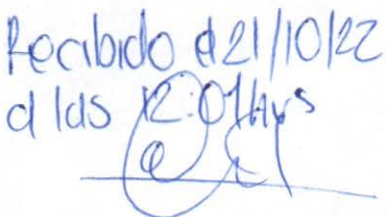 Recibido el 21/10/22
a las 12:07 hrs